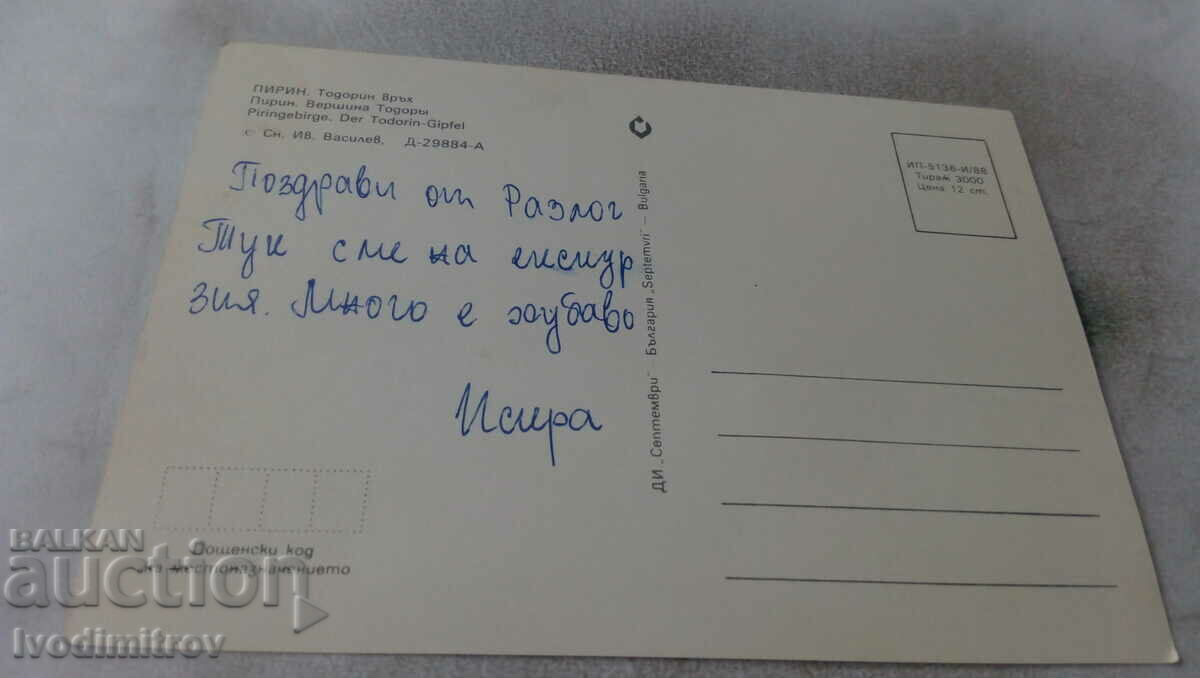 ПИРИН. Тодорин връх
Пирин. Вершина Тодоры
Piringebirge. Der Todorin-Gipfel
© Сн. Ив. Василев, Д-29884-А
Поздрави от Разлог
Тук сме на екскур
зия. Много е хубаво
ДИ „Септември" — България „Septemvri" — Bulgaria
ИП-5136-И/88
Тираж 3000
Цена 12 ст.
Пощенски код
на местоназначението
BALKAN
auction
Ivodimitrov